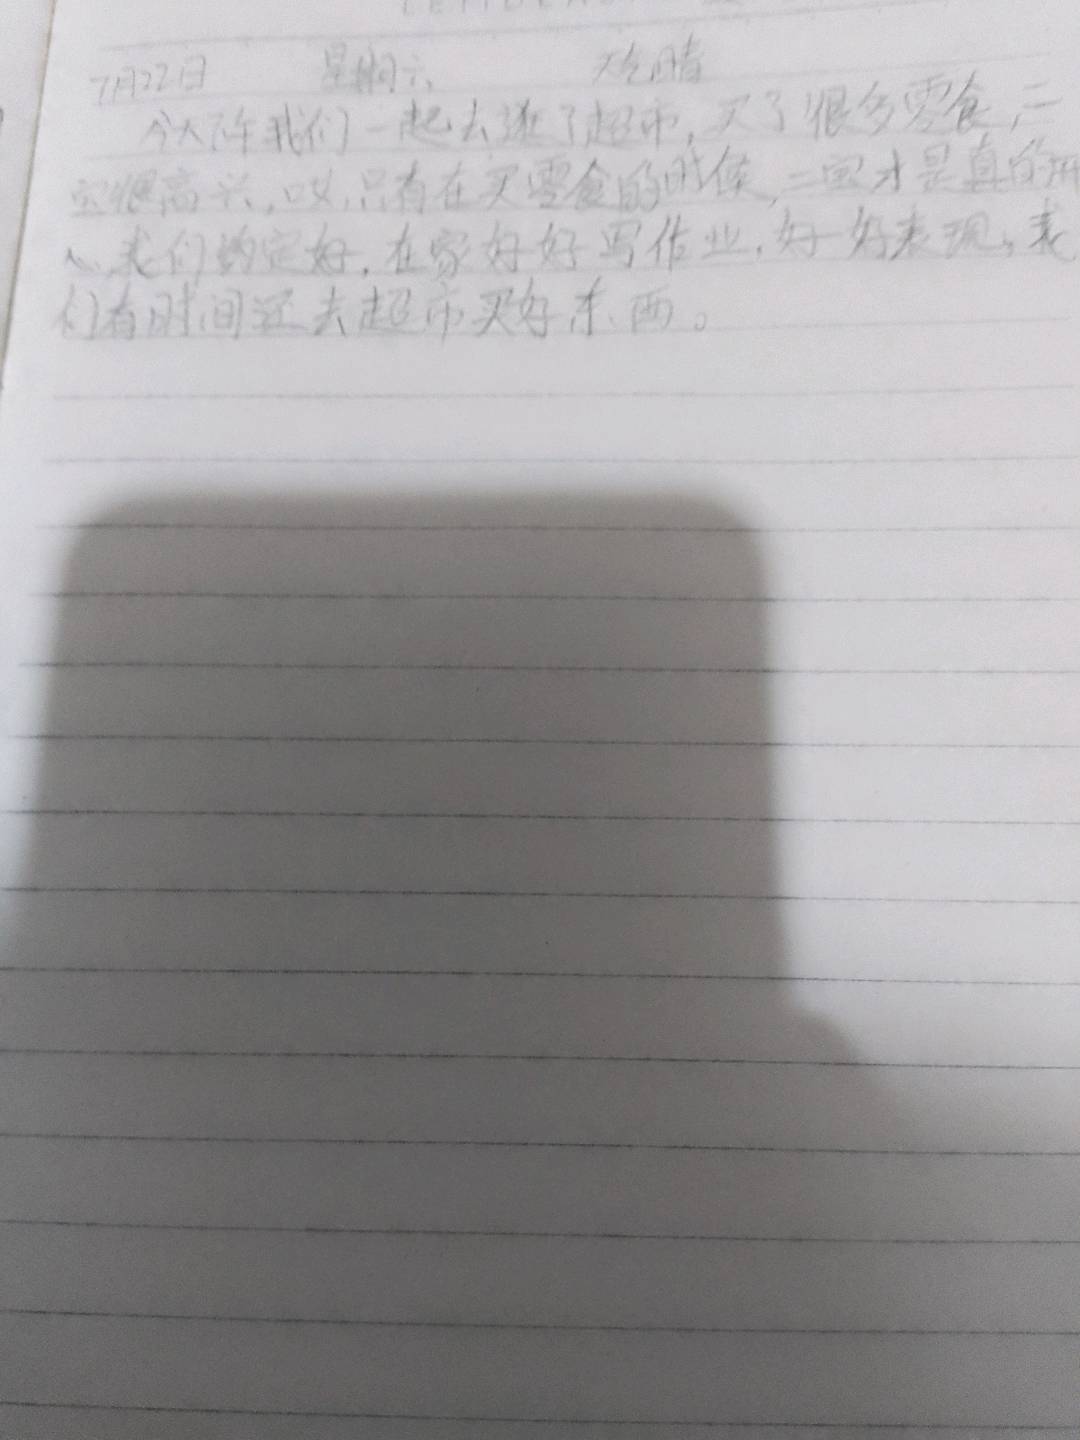 7月22日 星期六 天气晴
今天下午我们一起去逛了超市,买了很多零食,二
宝很高兴,哎,只有在买零食的时候,二宝才是真的开
心,我们约定好,在家好好写作业,好好表现,我
们有时间还去超市买好东西。